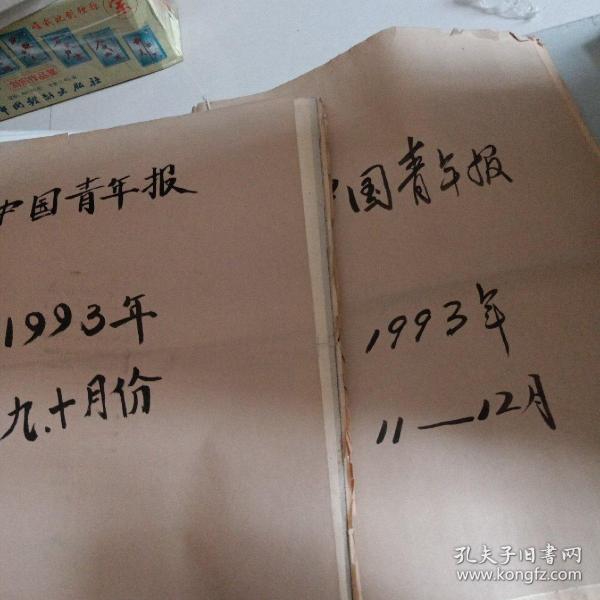 中国青年报
1993年
九.十月份
中国青年报
1993年
11—12月
孔夫子旧书网
www.kongfz.com